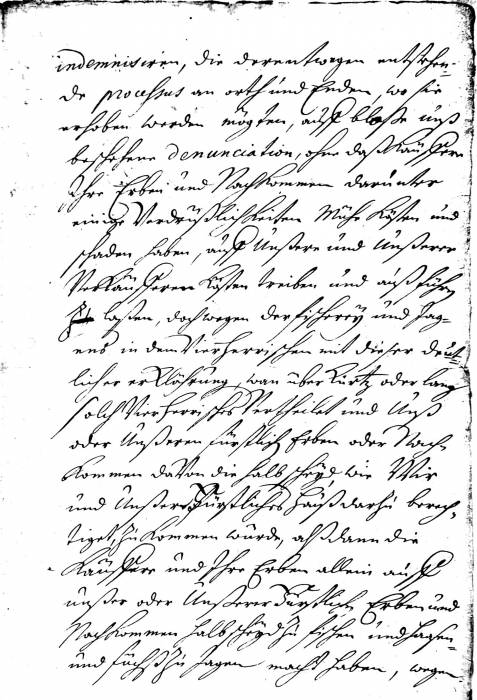 indemnisiren, die derentwegen entstehen-
de processus an orth und Enden, wo sie
erhoben werden mögten, auff bloße unß
beschehene denunciation, ohne daß Käuffern
Ihre Erben und Nachkommen darunter
einige Verdrüßlichkeiten Mühe Kosten und
schaden haben, auff Unßere und Unßerer
Verkäufferen Kosten treiben und außführen
laßen, doch wegen der fischerey und Jag-
ens in dem Vierherrischen mit dießer deut-
licher erklährung, wan über kurtz oder lang
solch Vierherrisches Vertheilet und Unß
oder Unßeren fürstlich Erben oder Nach-
kommen davon die halbscheyd, wie Wir
und Unßers Fürstliches Hauß darhu berech-
tiget, zukommen würde, alß dann die
Käuffere und Ihre Erben allein auff
unßer oder Unßerer Fürstlich Erben und
Nachkommen halbscheyd zu fischen und hagen
und füchß zu jagen macht haben, wegen